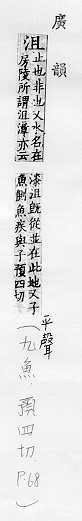 廣韻
沮
止也非也又水名在
房陵所謂沮漳亦云
漆沮旣從並在此地又子
魚側魚疾與子預四切
平聲
(九魚.預四切.P.68)